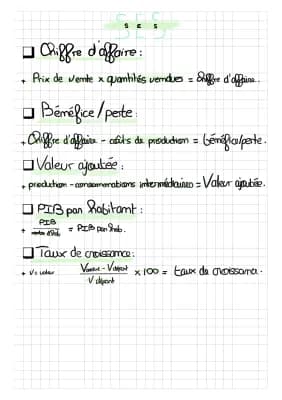 SES
S E S
□ Chiffre d'affaire :
+ Prix de vente x quantités vendues = Chiffre d'affaire.
□ Bénéfice/perte :
+ Chiffre d'affaire - coûts de production = bénéfice/perte.
□ Valeur ajoutée :
+ production - consommations intermédiaires = Valeur ajoutée.
□ PIB par habitant :
+ PIB / d'hab = PIB par hab.
□ Taux de croissance :
+ Vs Varrivé - Vdépart / V départ x 100 = taux de croissance.